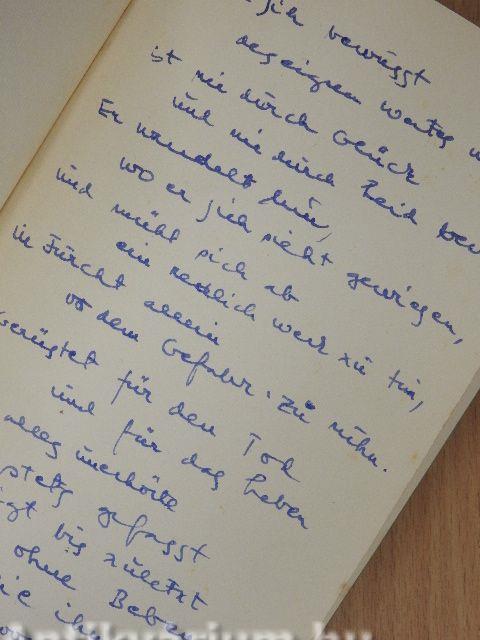 sich bewusst
des eignen Wertes
ist nie durch Glück
und nie durch Leid
Er wandelt hin,
wo er sich sieht gewiesen,
und müht sich ab
ein redlich Werk zu tun,
in Furcht allein
vor dem Gefahr. Zu ruhn.
Gerüstet für den Tod
und für das Leben
alles unerhörte
stets gefasst
bis zuletzt
ohne Beben
Antikvarium.hu